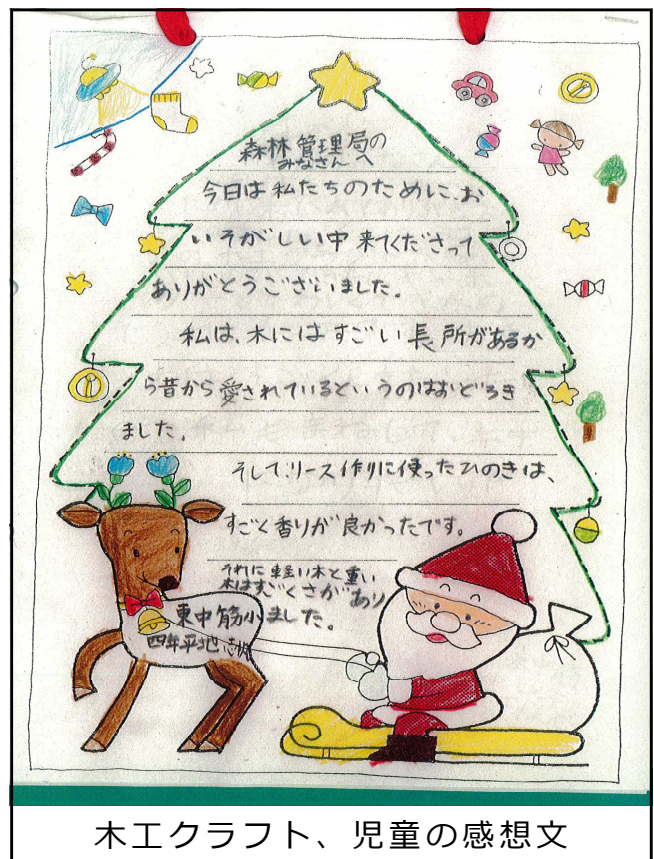 森林管理局の
みなさんへ
今日は私たちのために、お
いそがしい中来てくださって
ありがとうございました。
私は、木にはすごい長所があるか
ら昔から愛されているというのはおどろき
ました。
そして、リース作りに使ったひのきは、
すごく香りが良かったです。
それに軽い木と重い
木はすごくさがあり
ました。
東中筋小
四年平地
木工クラフト、児童の感想文